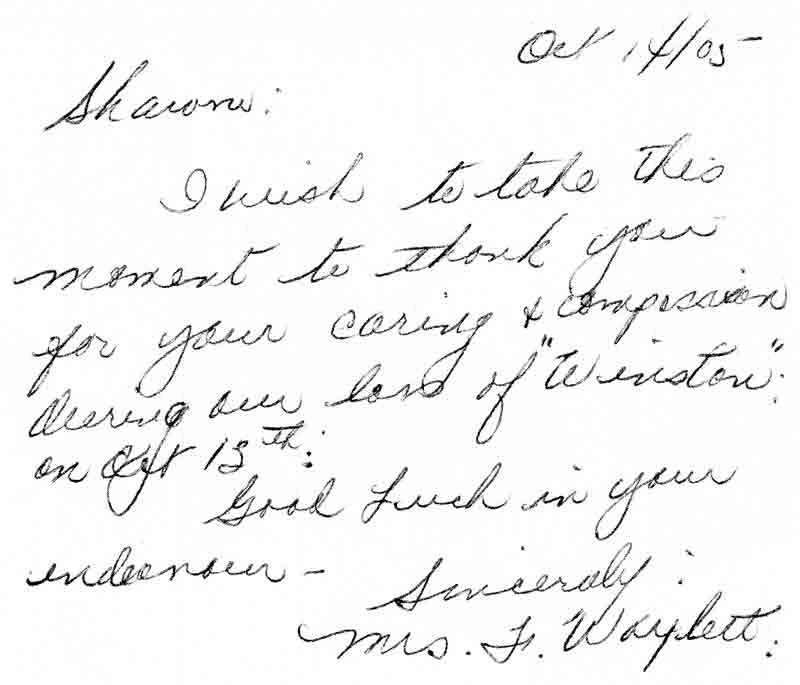 Oct 14/05
Sharon:
I wish to take this
moment to thank you
for your caring & compassion
during our loss of "Winston".
on Oct 13th:
Good Luck in your
endeavour –
Sincerely:
Mrs. F. Waylett.